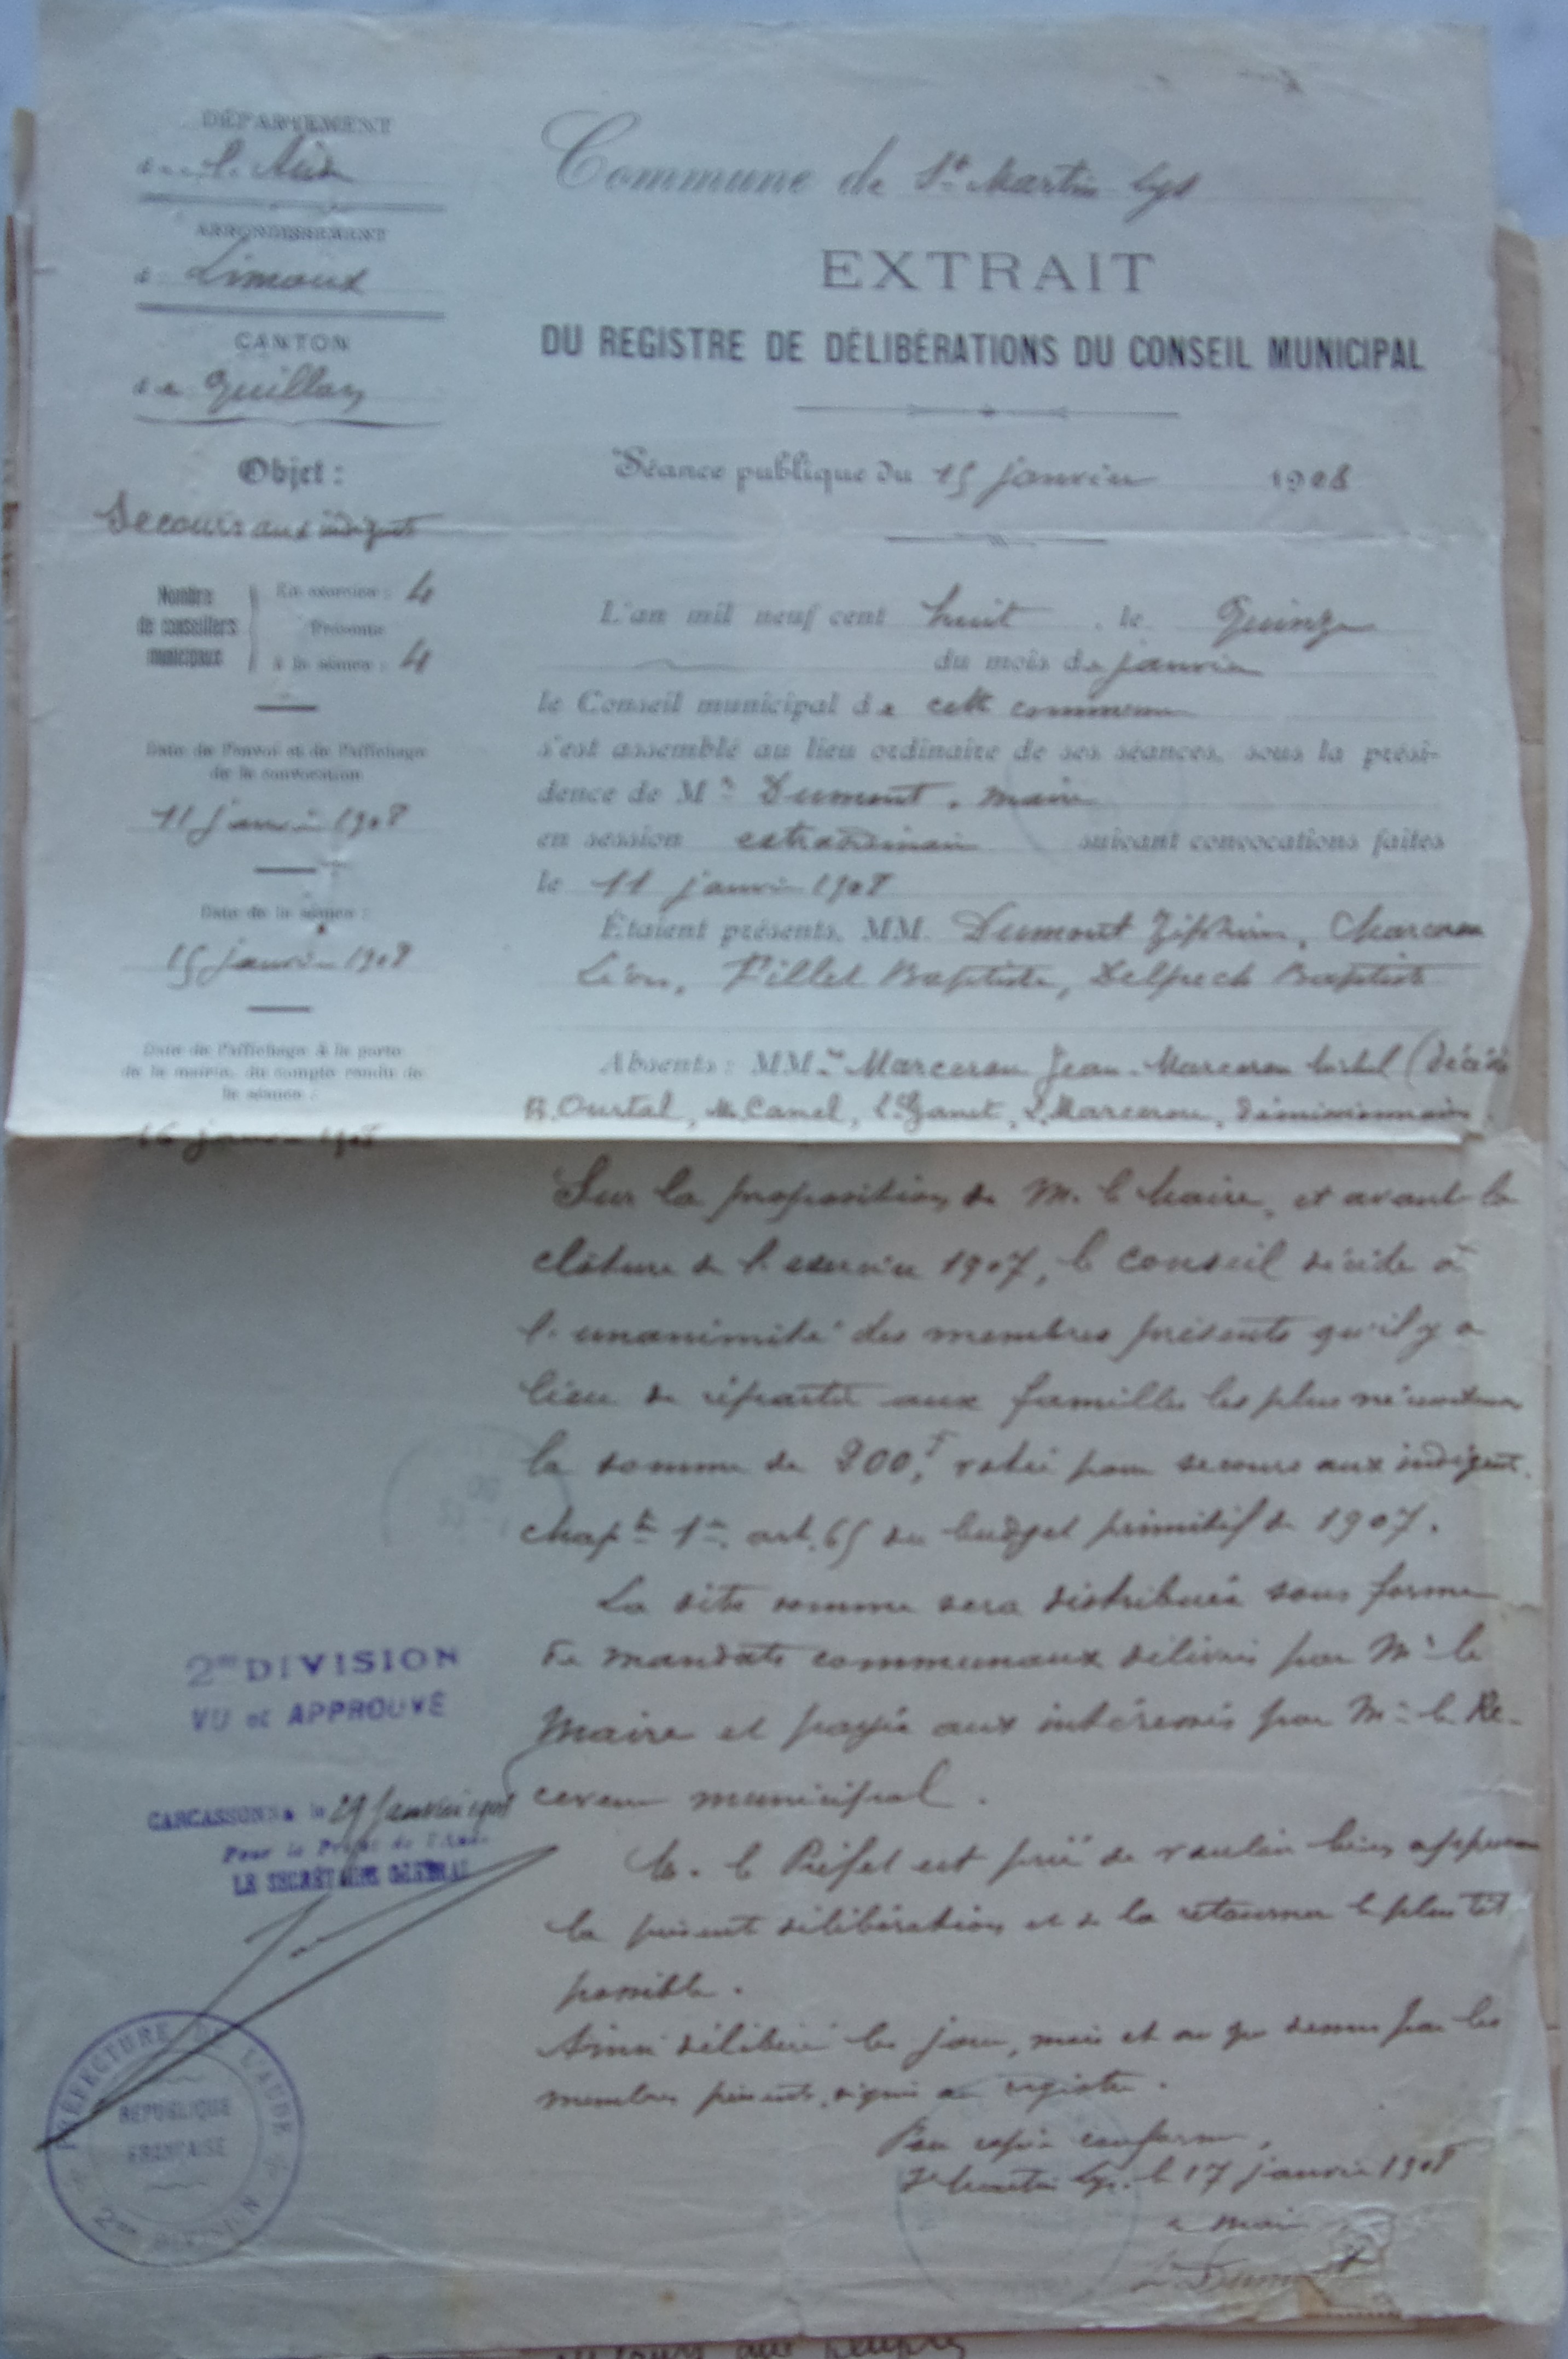 DÉPARTEMENT
de l'Aude
ARRONDISSEMENT
de Limoux
CANTON
de Quillan
Objet :
Secours aux indigents
Nombre de conseillers municipaux
En exercice : 4
Présents à la séance : 4
Date de l'envoi et de l'affichage
de la convocation
11 janvier 1908
Date de la séance :
15 janvier 1908
Date de l'affichage à la porte
de la mairie, du compte rendu de
la séance :
16 janvier 1908
Commune de St Martin Lys
EXTRAIT
DU REGISTRE DE DÉLIBÉRATIONS DU CONSEIL MUNICIPAL
Séance publique du 15 janvier 1908
L'an mil neuf cent huit, le Quinze
du mois de janvier
le Conseil municipal de cette commune
s'est assemblé au lieu ordinaire de ses séances, sous la prési-
dence de Mr Dumont, maire
en session extraordinaire suivant convocations faites
le 11 janvier 1908
Étaient présents, MM. Dumont Zéphirin, Marceron
Léon, Pillet Baptiste, Delpech Baptiste
Absents : MM. Marceron Jean, Marceron (décédé
B. Ourtal, M. Canel, Marceron, démissionnaires.
Sur la proposition de M. le Maire, et avant la
clôture de l'exercice 1907, le conseil décide à
l'unanimité des membres présents qu'il y a
lieu de répartir aux familles les plus nécessiteuses
la somme de 200 F, votée pour secours aux indigents.
chaptre 1er, art. 65 du budget primitif de 1907.
La dite somme sera distribuée sous forme
de mandats communaux délivrés par Mr le
Maire et payés aux intéressés par Mr le Re-
ceveur municipal.
M. le Préfet est prié de vouloir bien approuver
la présente délibération et de la retourner le plus tôt
possible.
Ainsi délibéré les jour, mois et an que dessus par les
membres présents, signé au registre.
Pour copie conforme,
St Martin Lys, le 17 janvier 1908
Le Maire
Dumont
2me DIVISION
VU et APPROUVÉ
CARCASSONNE, le 29 janvier 1908
Pour le Préfet de l'Aude
LE SECRÉTAIRE GÉNÉRAL
PRÉFECTURE DE L'AUDE
RÉPUBLIQUE
FRANÇAISE
2me DIVISION